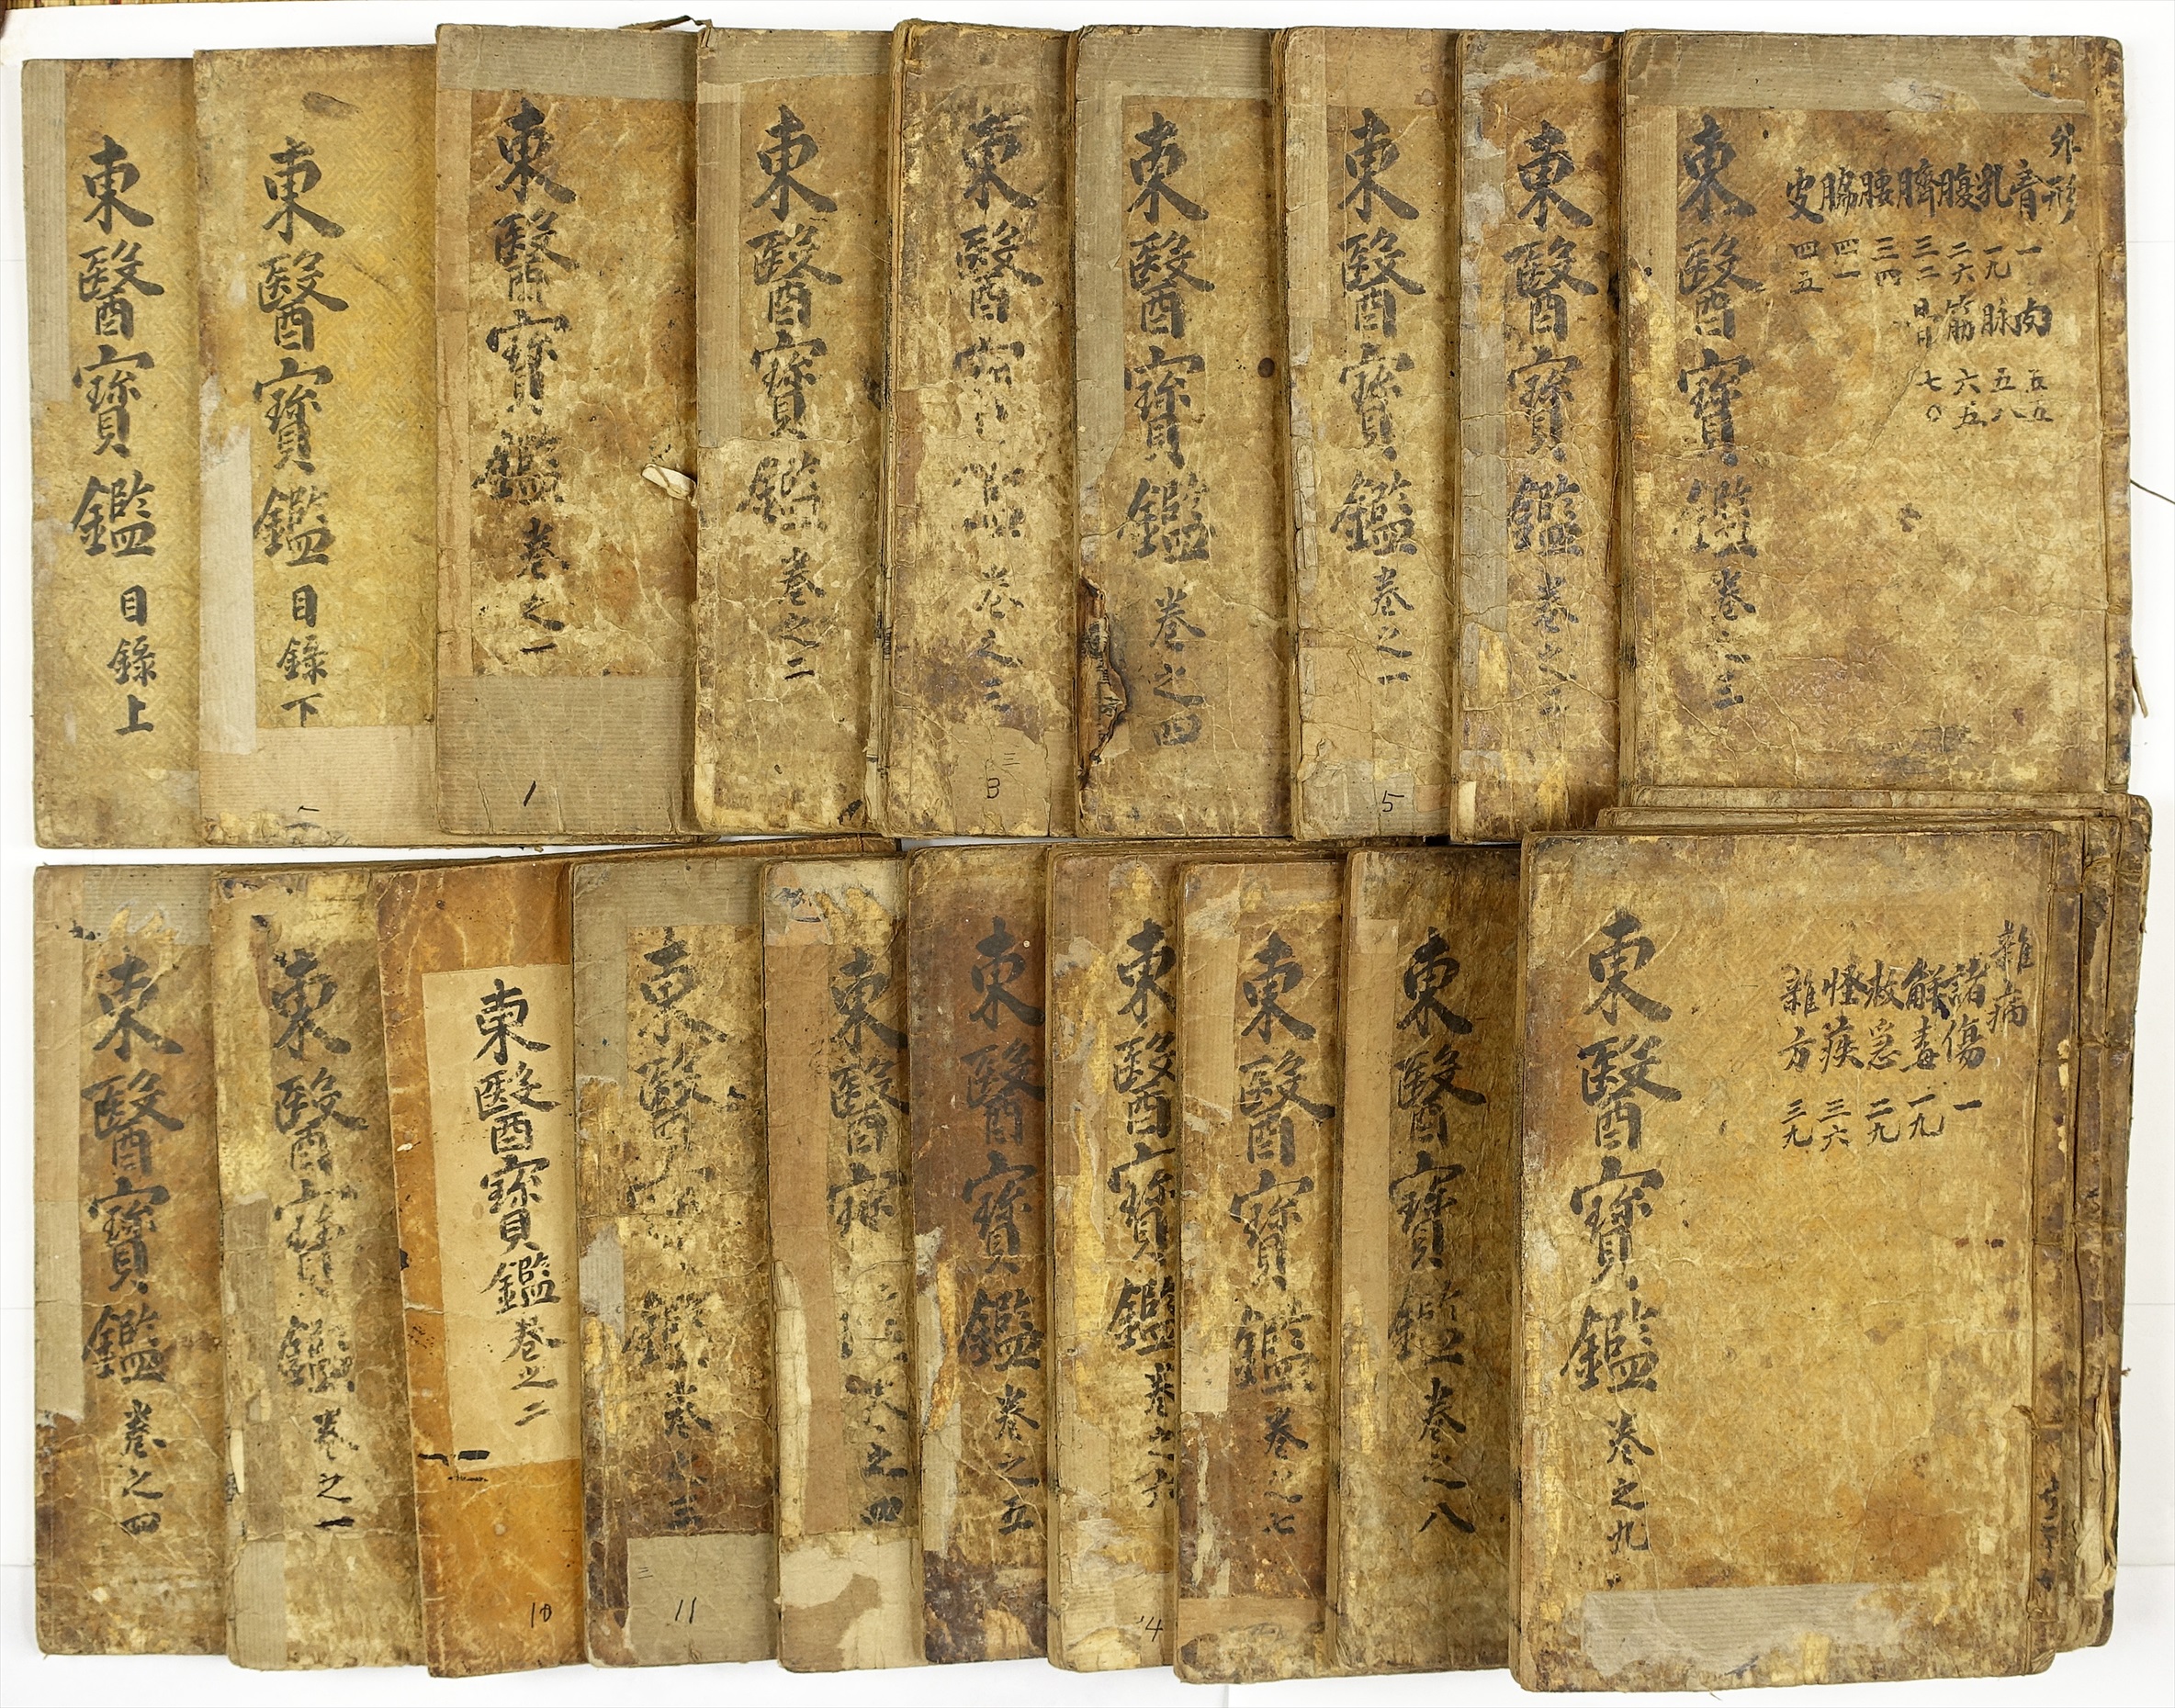 東醫寶鑑 目錄上
東醫寶鑑 目錄下
東醫寶鑑 卷之一
1
東醫寶鑑 卷之二
東醫 卷之三
三
3
東醫寶鑑 卷之四
東醫寶鑑 卷之一
5
東醫寶鑑 卷之二
東醫寶鑑 卷之三
外形
胷 一 肉 五五
乳 一九 脉 五八
腹 二六 筋 六五
臍 三二 骨 七〇
腰 三四
脇 四一
皮 四五
東醫寶鑑 卷之四
東醫寶鑑 卷之一
東醫寶鑑 卷之二
10
東醫 鑑 卷之三
三
11
東醫寶 卷之四
東醫寶鑑 卷之五
東醫寶鑑 卷之六
14
東醫寶鑑 卷之七
東醫寶鑑 卷之八
東醫寶鑑 卷之九
雜病
諸傷 一
解毒 一九
救急 二九
怪疾 三六
雜方 三九